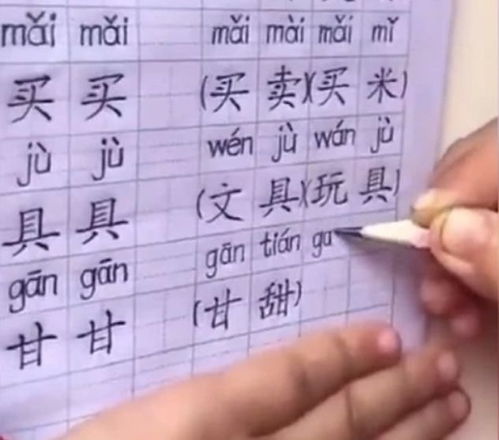 mǎi mǎi mǎi mài mǎi mǐ
买 买 (买 卖)(买 米)
jù jù wén jù wán jù
具 具 (文 具)(玩 具)
gān gān gān tián ga
甘 甘 (甘 甜)